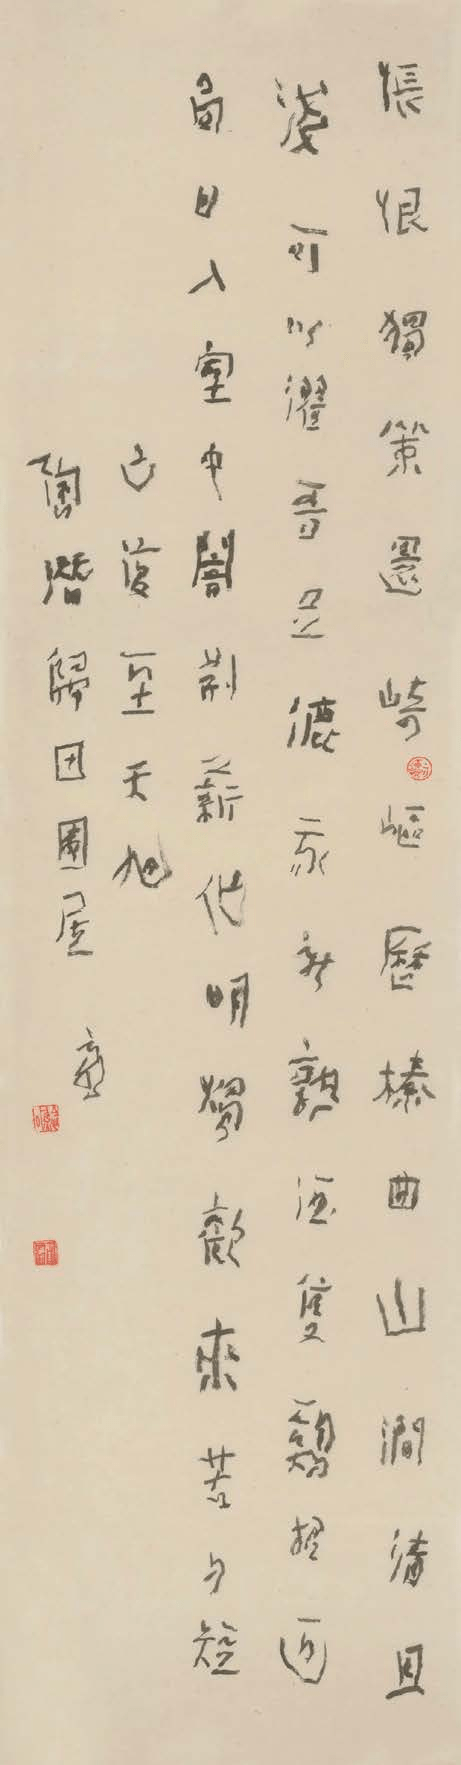 悵恨獨策還崎嶇歷榛曲山澗清且
淺可以濯吾足漉我新熟酒隻鷄招近
局日入室中闇荊薪代明燭歡來苦夕短
已復至天旭
陶潛歸田園居